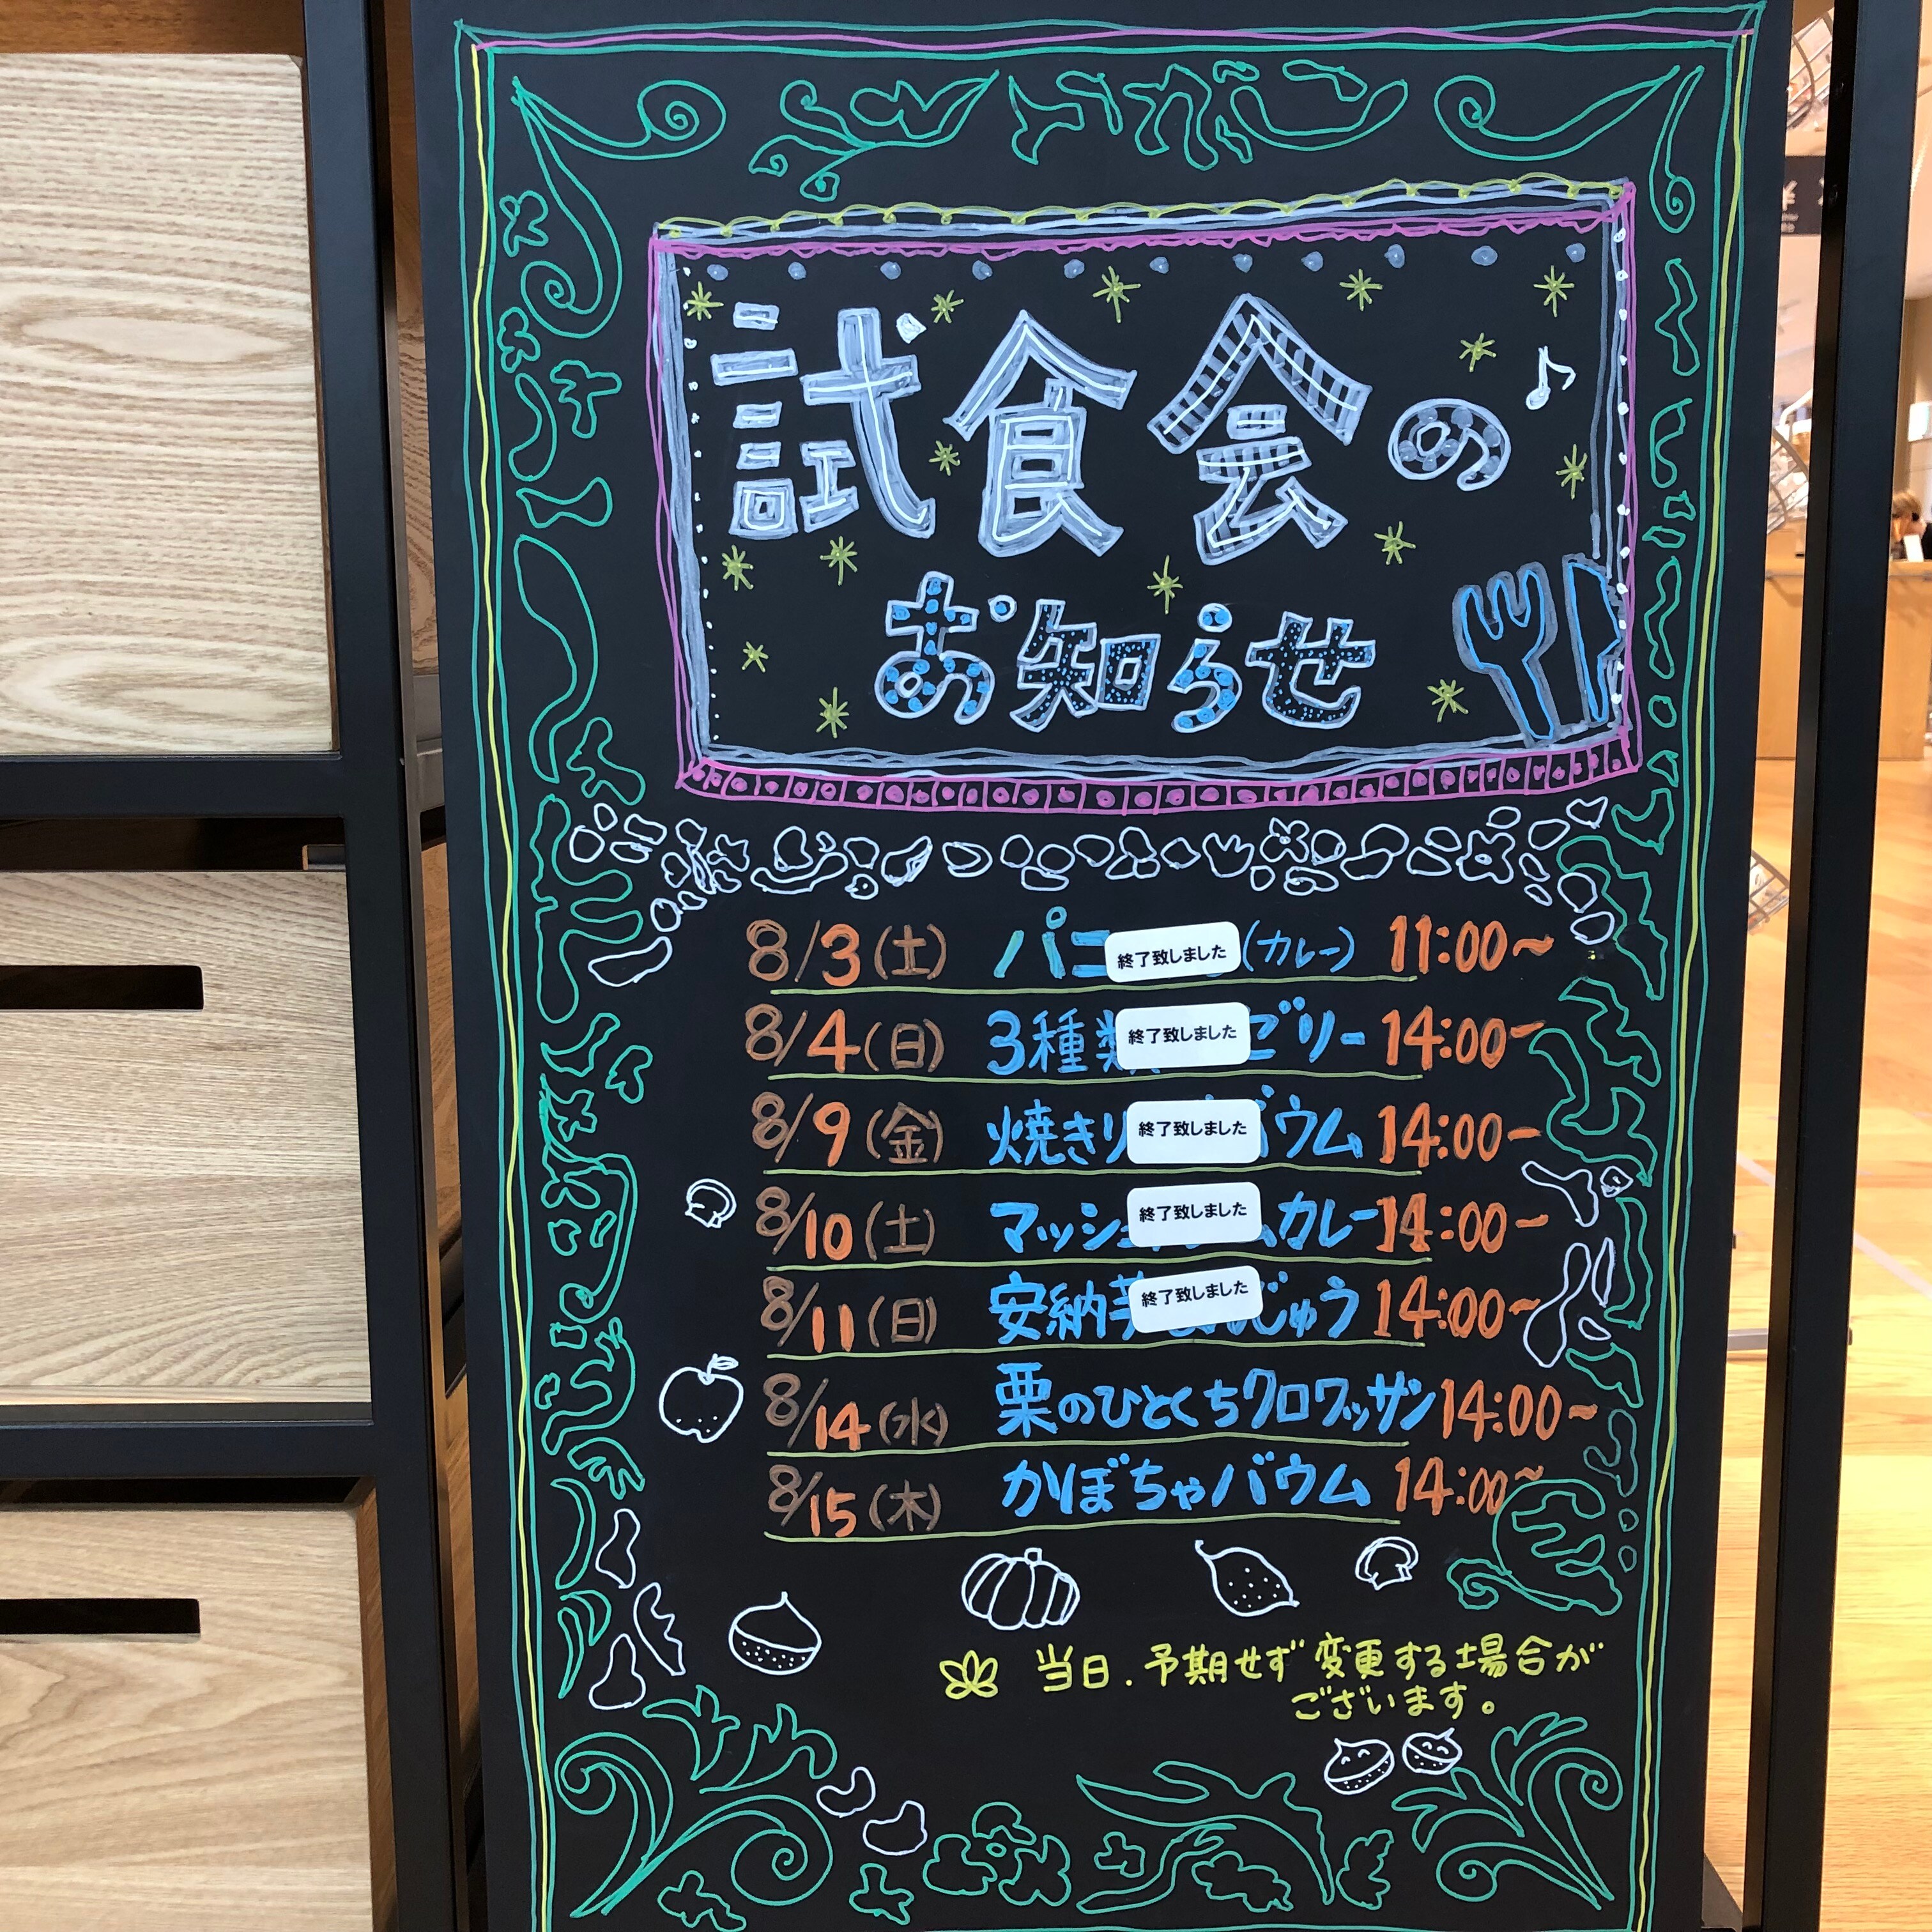 試食会の
お知らせ
8/3(土) パニ 終了致しました (カレー) 11:00~
8/4(日) 3種類 終了致しました ごリー 14:00~
8/9(金) 焼きり 終了致しました バウム 14:00~
8/10(土) マッシュ 終了致しました ムカレー 14:00~
8/11(日) 安納芋 終了致しました じゅう 14:00~
8/14(水) 栗のひとくちクロワッサン 14:00~
8/15(木) かぼちゃバウム 14:00~
当日.予期せず変更する場合が
ございます。